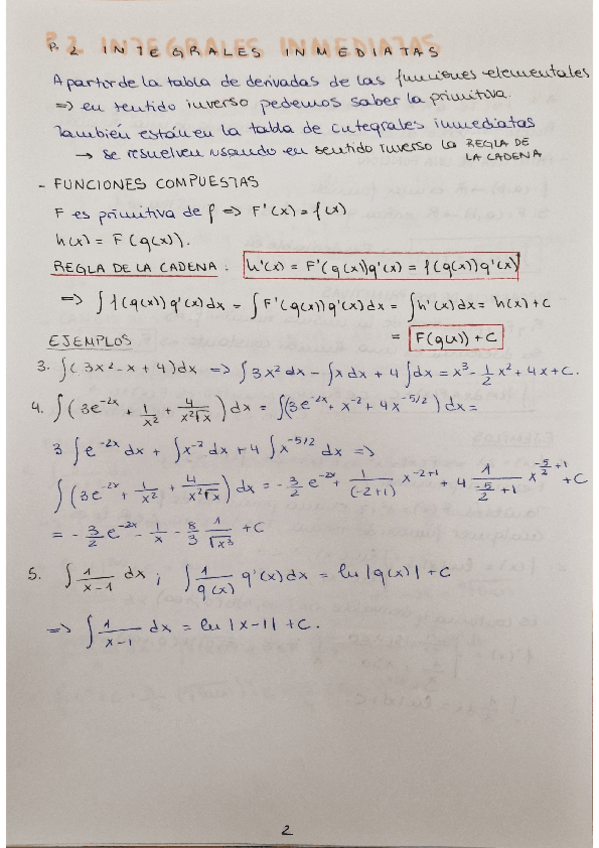 P. 2 INTEGRALES INMEDIATAS
A partir de la tabla de derivadas de las funciones elementales
=> en sentido inverso podemos saber la primitiva.
También están en la tabla de integrales inmediatas
→ se resuelven usando en sentido inverso la REGLA DE
LA CADENA
- FUNCIONES COMPUESTAS
F es primitiva de f => F'(x) = f(x)
h(x) = F(g(x)).
REGLA DE LA CADENA: h'(x) = F'(g(x))g'(x) = f(g(x))g'(x)
=> ∫ f(g(x)) g'(x) dx = ∫ F'(g(x)) g'(x) dx = ∫ h'(x) dx = h(x) + C
= F(g(x)) + C
EJEMPLOS
3. ∫ (3x² - x + 4) dx => ∫ 3x² dx - ∫ x dx + 4 ∫ dx = x³ - 1/2 x² + 4x + C.
4. ∫ (3e^(-2x) + 1/x² + 4/(x²√x)) dx = ∫ (3e^(-2x) + x^(-2) + 4x^(-5/2)) dx =
3 ∫ e^(-2x) dx + ∫ x^(-2) dx + 4 ∫ x^(-5/2) dx =>
∫ (3e^(-2x) + 1/x² + 4/(x²√x)) dx = -3/2 e^(-2x) + 1/(-2+1) x^(-2+1) + 4 1/(-5/2 + 1) x^(-5/2 + 1) + C
= -3/2 e^(-2x) - 1/x - 8/3 1/√x³ + C
5. ∫ 1/(x-1) dx ; ∫ 1/g(x) g'(x) dx = ln |g(x)| + C
=> ∫ 1/(x-1) dx = ln |x-1| + C.
2